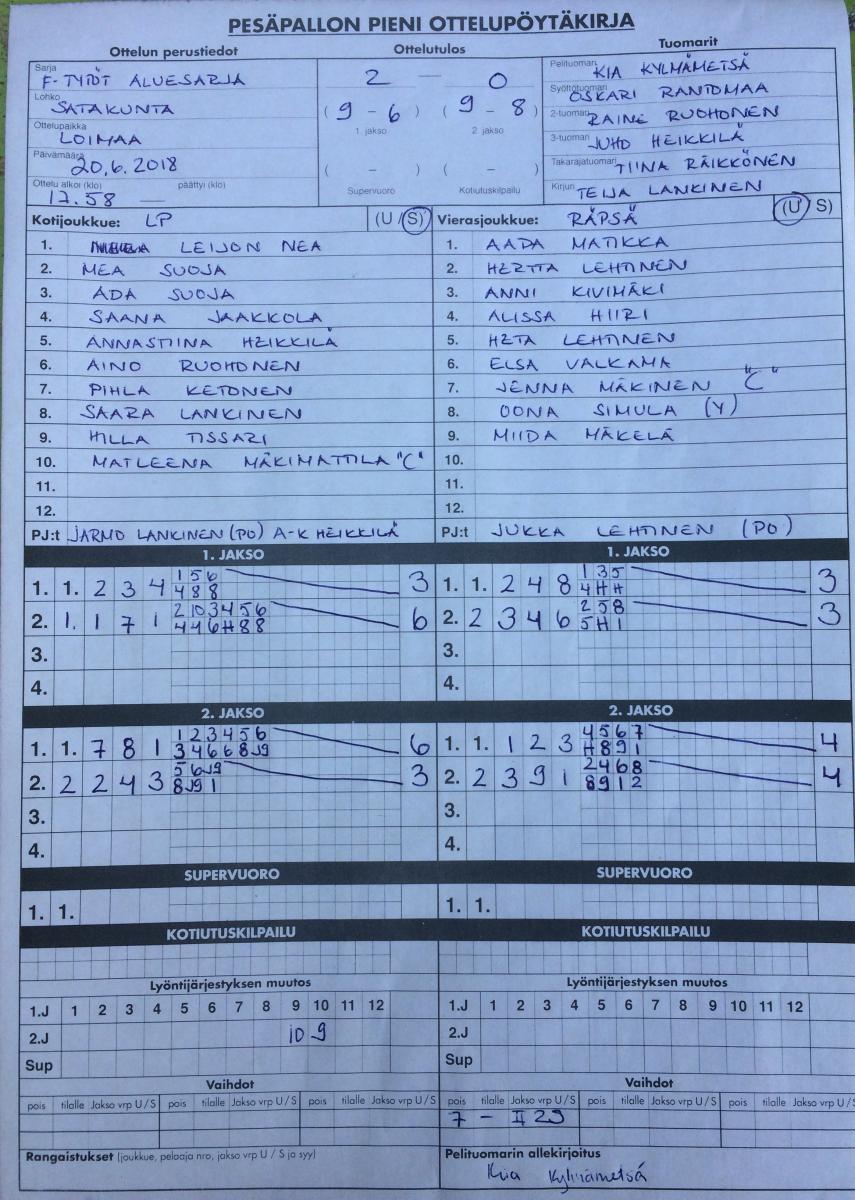 PESÄPALLON PIENI OTTELUPÖYTÄKIRJA
Ottelun perustiedot
Ottelutulos
Tuomarit
Sarja F-TYTÖT ALUESARJA
Lohko SATAKUNTA
Ottelupaikka LOIMAA
Päivämäärä 20.6.2018
Ottelu alkoi (klo) päättyi (klo)
17.58 —
2 — 0
(9 - 6) (9 - 8)
1. jakso 2. jakso
( - ) ( - )
Supervuoro Kotiutuskilpailu
Pelituomari KIA KYLMÄMETSÄ
Syöttötuomari OSKARI RANTOMAA
2-tuomari RAINE RUOHONEN
3-tuomari JUHO HEIKKILÄ
Takarajatuomari TIINA RÄIKKÖNEN
Kirjuri TEIJA LANKINEN
Kotijoukkue: LP (U / S)
1. LEIJON NEA
2. MEA SUOJA
3. ADA SUOJA
4. SAANA JAAKKOLA
5. ANNASTIINA HEIKKILÄ
6. AINO RUOHONEN
7. PIHLA KETONEN
8. SAARA LANKINEN
9. HILLA TISSARI
10. MATLEENA MÄKIMATTILA "C"
11.
12.
PJ:t JARMO LANKINEN (PO) A-K HEIKKILÄ
Vierasjoukkue: RÄPSÄ (U / S)
1. AADA MATIKKA
2. HERTTA LEHTINEN
3. ANNI KIVIMÄKI
4. ALISSA HIIRI
5. HETA LEHTINEN
6. ELSA VALKAMA
7. JENNA MÄKINEN "C"
8. OONA SIMULA (Y)
9. MIIDA MÄKELÄ
10.
11.
12.
PJ:t JUKKA LEHTINEN (PO)
1. JAKSO
1. 1. 2 3 4 1 5 6 3
4 8 8
2. 1. 1 7 1 2 10 3 4 5 6 6
4 4 6 H 8 8
3.
4.
1. JAKSO
1. 1. 2 4 8 1 3 5 3
4 H H
2. 2 3 4 6 2 5 8 3
5 H 1
3.
4.
2. JAKSO
1. 1. 7 8 1 1 2 3 4 5 6 6
3 4 6 6 8 J9
2. 2 2 4 3 5 6 J9 3
8 J9 1
3.
4.
2. JAKSO
1. 1. 1 2 3 4 5 6 7 4
H 8 9 1
2. 2 3 9 1 2 4 6 8 4
8 9 1 2
3.
4.
SUPERVUORO
1. 1.
SUPERVUORO
1. 1.
KOTIUTUSKILPAILU
KOTIUTUSKILPAILU
Lyöntijärjestyksen muutos
1.J 1 2 3 4 5 6 7 8 9 10 11 12
2.J 10 9
Sup
Lyöntijärjestyksen muutos
1.J 1 2 3 4 5 6 7 8 9 10 11 12
2.J
Sup
Vaihdot
pois tilalle Jakso vrp U / S pois tilalle Jakso vrp U / S pois tilalle Jakso vrp U / S
Vaihdot
pois tilalle Jakso vrp U / S pois tilalle Jakso vrp U / S pois tilalle Jakso vrp U / S
7 – II 2S
Rangaistukset (joukkue, pelaaja nro, jakso vrp U / S ja syy)
Pelituomarin allekirjoitus
Kia Kylmämetsä